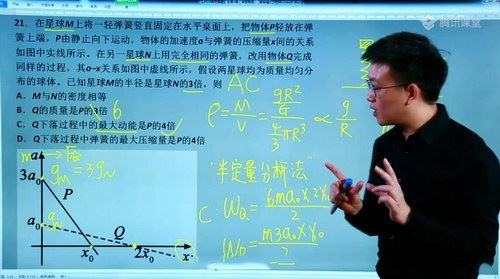 腾讯课堂
21. 在星球M上将一轻弹簧竖直固定在水平桌面上，把物体P轻放在弹
簧上端，P由静止向下运动，物体的加速度a与弹簧的压缩量x间的关系
如图中实线所示。在另一星球N上用完全相同的弹簧，改用物体Q完成
同样的过程，其a-x关系如图中虚线所示，假设两星球均为质量均匀分
布的球体。已知星球M的半径是星球N的3倍，则 AC
A. M与N的密度相等
B. Q的质量是P的3倍 6
C. Q下落过程中的最大动能是P的4倍
D. Q下落过程中弹簧的最大压缩量是P的4倍
ρ = M/V = (gR²/G)/(4/3 πR³) ∝ g/R
a
3a₀
gM = 3gN
P
a₀
gN
Q
O
x₀
2x₀
x
"半定量分析法"
C: WQ = 6ma₀×2x₀/2
WP = m3a₀×x₀/2